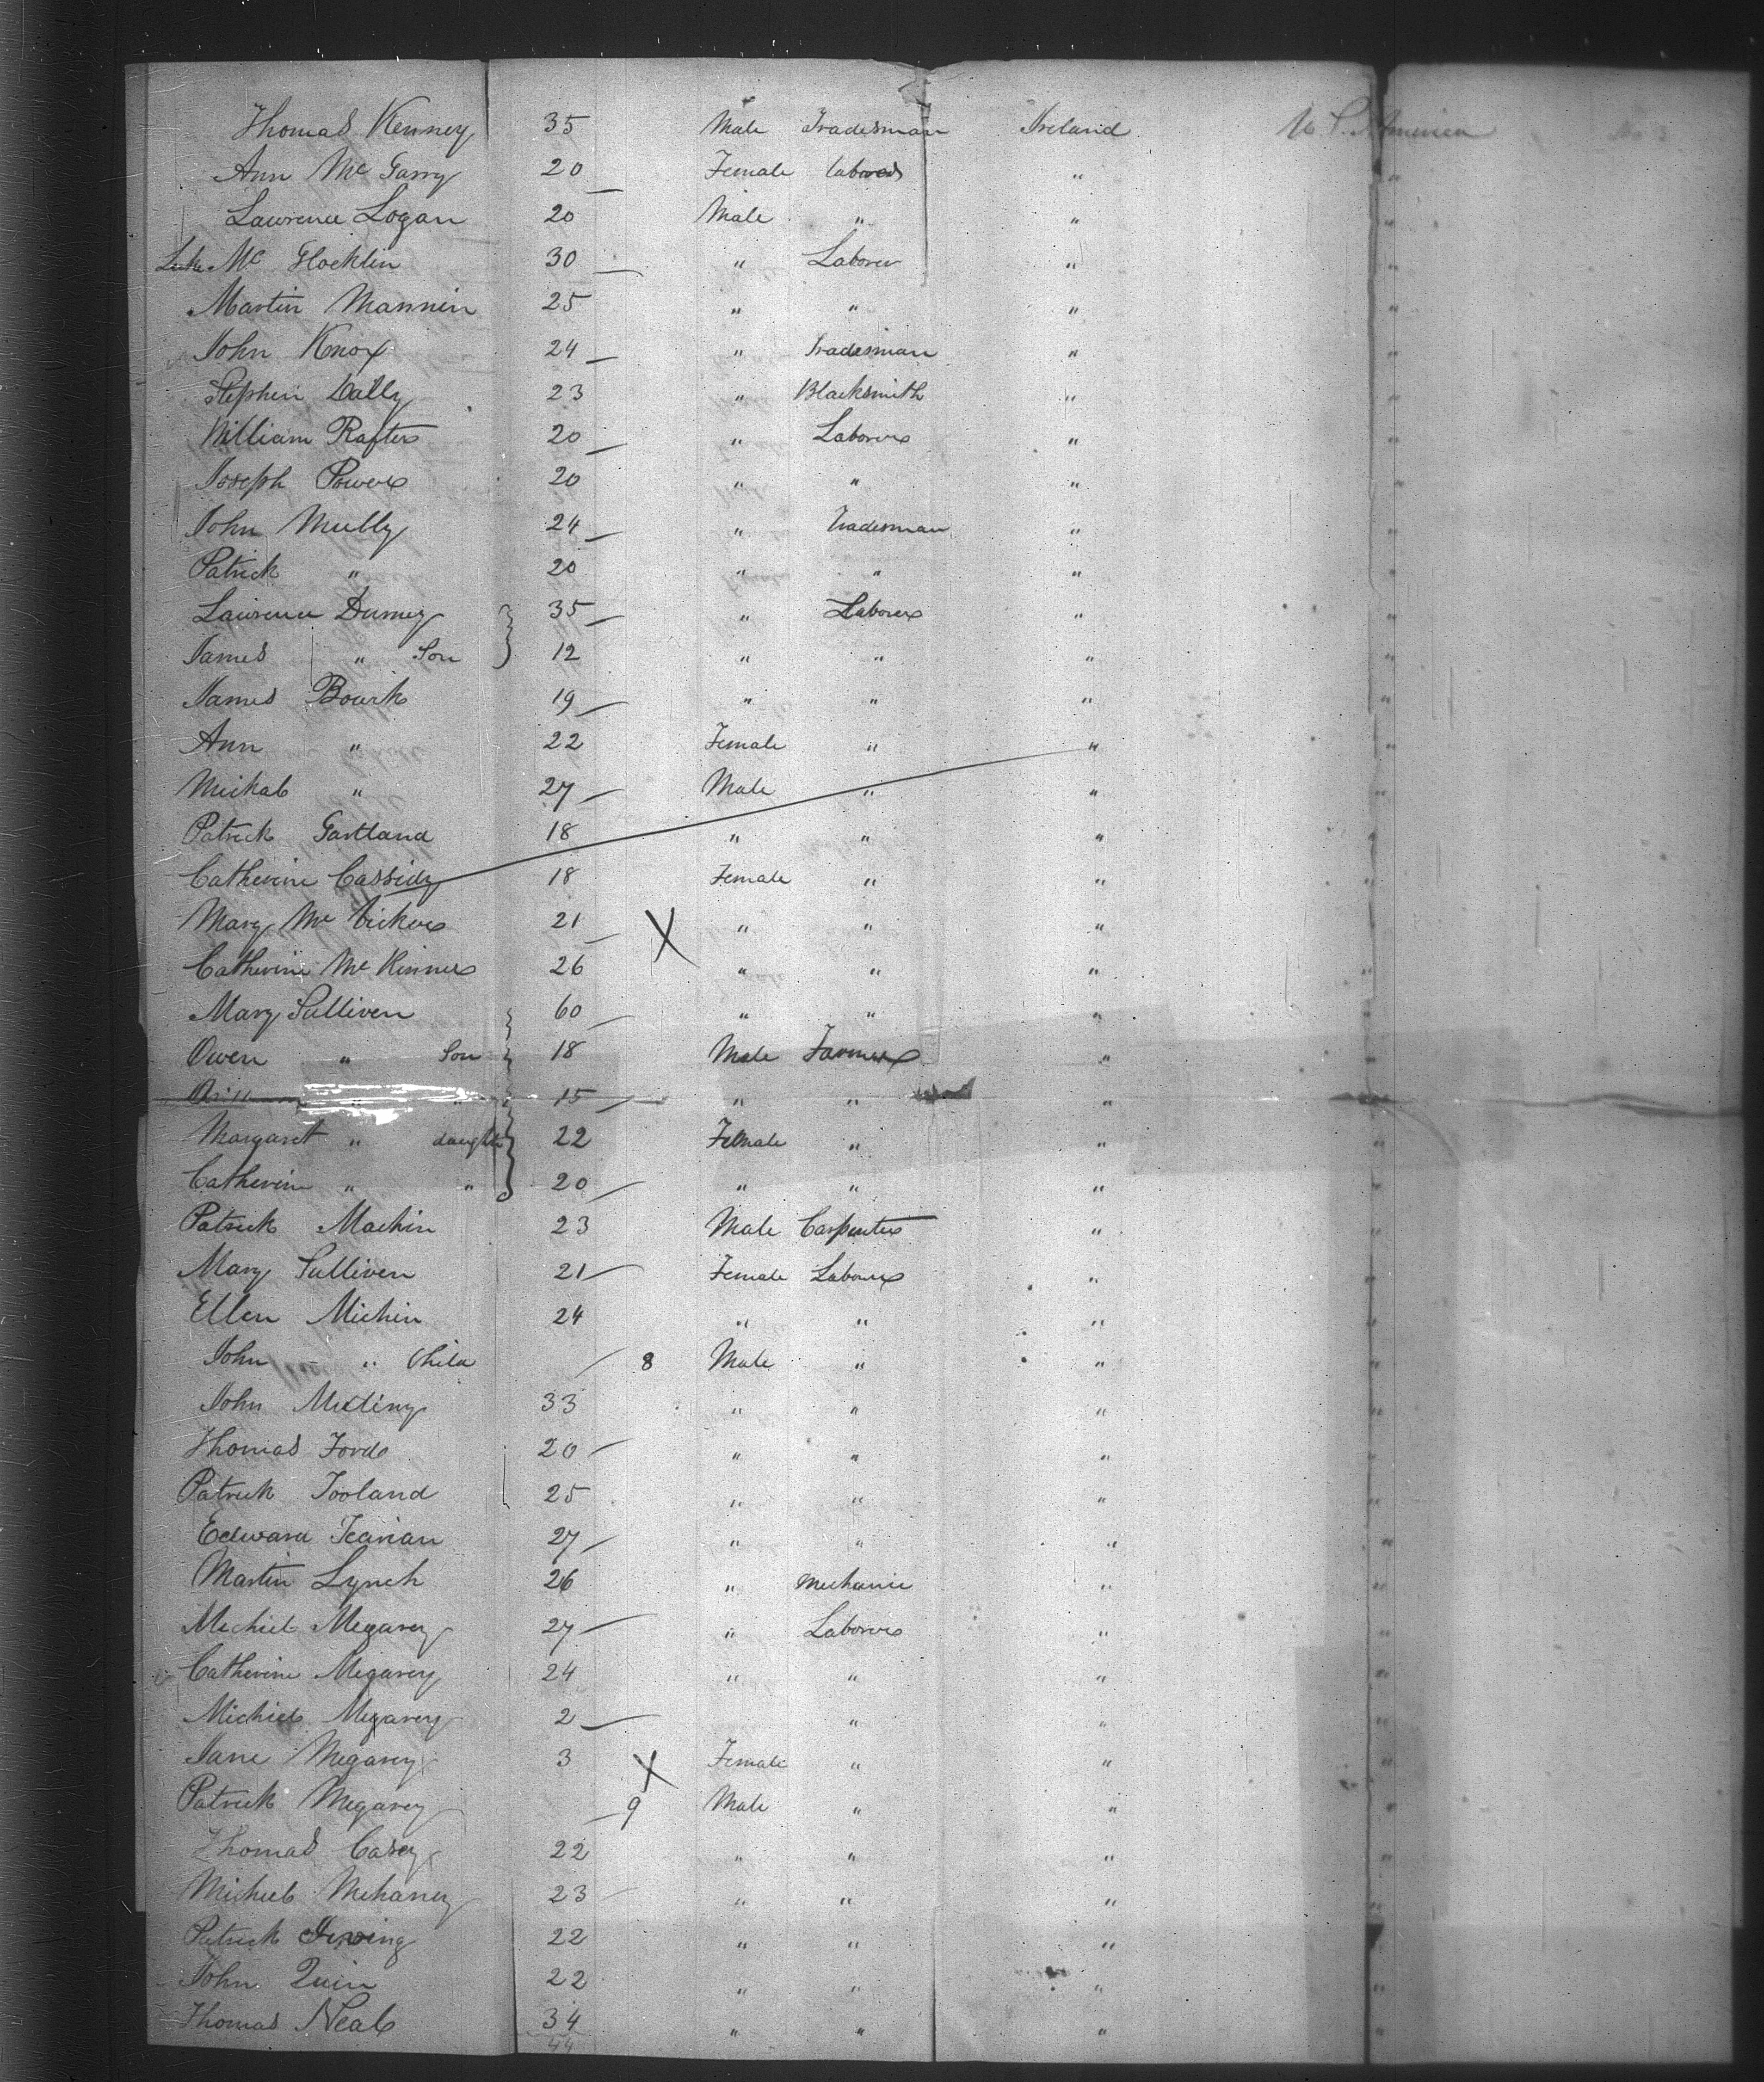 Thomas Kenney 35 Male Tradesman Ireland U. S. America
Ann Mc Garry 20 Female labored " "
Lawrence Logan 20 Male " " "
Luke Mc Glocklin 30 " Laborer " "
Martin Mannin 25 " " " "
John Knox 24 " Tradesman " "
Stephen Dally 23 " Blacksmith " "
William Rafter 20 " Laborer " "
Joseph Power 20 " " " "
John Mully 24 " Tradesman " "
Patrick " 20 " " " "
Lawrence Durney 35 " Laborer " "
James " Son 12 " " " "
James Bourk 19 " " " "
Ann " 22 Female " " "
Mickal " 27 Male " " "
Patrick Gartland 18 " " " "
Catherine Cassidy 18 Female " " "
Mary Mc Vicker 21 X " " " "
Catherine Mc Kinner 26 " " " "
Mary Sulliven 60 " " " "
Owen " Son 18 Male Farmer " "
" " 15 " " " "
Margaret " daughter 22 Female " " "
Catherine " " 20 " " " "
Patrick Machin 23 Male Carpenter " "
Mary Sulliven 21 Female Laborer " "
Ellen Michin 24 " " " "
John " Child 8 Male " " "
John 33 " " " "
Thomas Ford 20 " " " "
Patrick Tooland 25 " " " "
Edward 27 " " " "
Martin Lynch 26 " Mechanic " "
Michiel Megarey 27 " Laborer " "
Catherine Megarey 24 " " " "
Michiel Megarey 2 " " "
Jane Megarey 3 X Female " " "
Patrick Megarey 9 Male " " "
Thomas Casey 22 " " " "
Michiel Mehaney 23 " " " "
Patrick Irwing 22 " " " "
John Quin 22 " " " "
Thomas Neal 34 " " " "
44